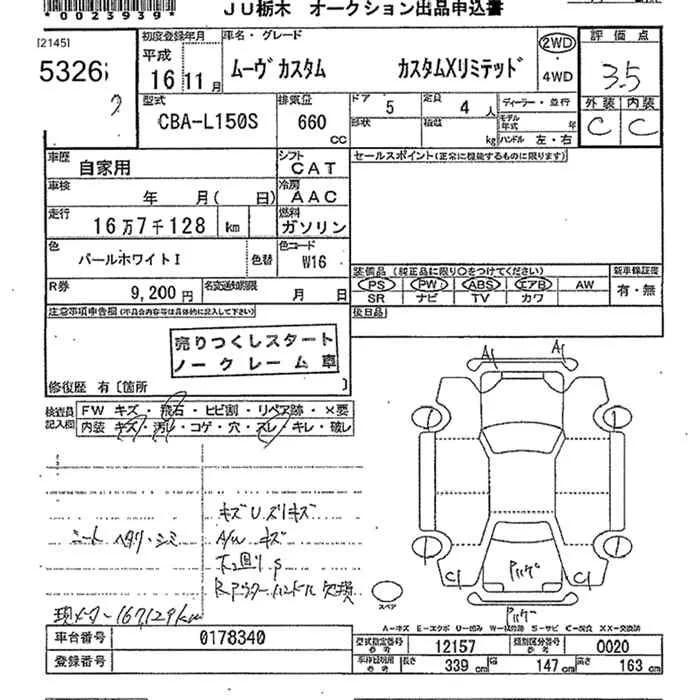 *0023939*
JU栃木 オークション出品申込書
[2145]
初度登録年月 車名・グレード 2WD 評価点
5326
平成 16 年 11 月 ムーヴカスタム カスタムXリミテッド 4WD 3.5
型式 排気量 ドア 5 定員 4 人 ディーラー・並行 外装 内装
CBA-L150S 660 cc 形状 積載 kg モデル年式 年 ハンドル 左・右 C C
車歴 自家用 シフト CAT セールスポイント(正常に機能するものに限ります)
車検 年 月( 日) 冷房 AAC
走行 16万7千128 km 燃料 ガソリン
色 パールホワイトI 色替 色コード W16
装備品 (純正品に限り○をつけてください) 新車保証書
R券 9,200円 名変通知期限 月 日 PS PW ABS エアB AW 有・無
SR ナビ TV カワ
注意事項申告欄(不具合内容等は具体的に記入して下さい) 後日品
売りつくしスタート
ノークレーム車
修復歴 有〔箇所 〕
A1 A1
検査員記入欄 FW キズ・飛石・ヒビ割・リペア跡・×要
内装 キズ・汚れ・コゲ・穴・スレ・キレ・破レ
キズUズリキズ
シート ヘタリ・シミ A/W キズ
下回りS
Rアウターハンドル 欠損
C1 C1
スペア
現メーター 167129km
A-キズ E-エクボ U-凹み W-補修跡 S-サビ C-腐食 XX-交換済
車台番号 0178340 型式指定番号 参考 12157 類別区分番号 参考 0020
登録番号 長さ 339 cm 幅 147 cm 高さ 163 cm